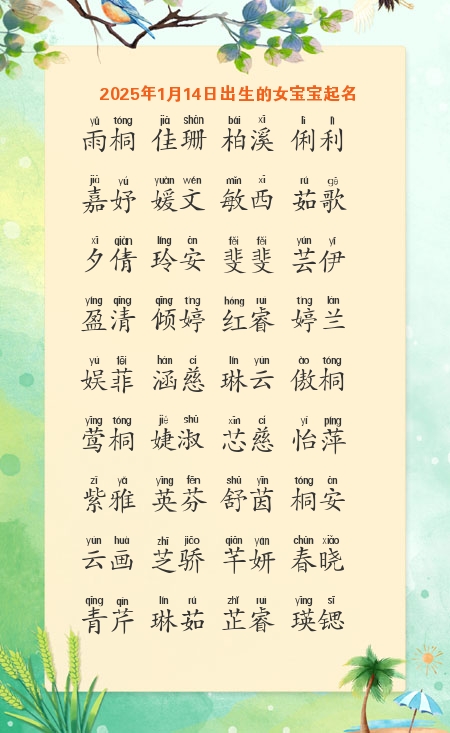 2025年1月14日出生的女宝宝起名
yǔ tóng jiā shān bǎi xī lì lì
雨桐 佳珊 柏溪 俐利
jiā yú yuàn wén mǐn xī rú gē
嘉妤 媛文 敏西 茹歌
xī qiàn líng ān fěi fěi yún yī
夕倩 玲安 斐斐 芸伊
yíng qīng qīng tíng hóng ruì tíng lán
盈清 倾婷 红睿 婷兰
yú fēi hán cí lín yún ào tóng
娱菲 涵慈 琳云 傲桐
yīng tóng jié shū xīn cí yí píng
莺桐 婕淑 芯慈 怡萍
zǐ yǎ yīng fēn shū yīn tóng ān
紫雅 英芬 舒茵 桐安
yún huà zhī jiāo qiān yán chūn xiǎo
云画 芝骄 芊妍 春晓
qīng qín lín rú zhǐ ruì yīng sī
青芹 琳茹 芷睿 瑛锶